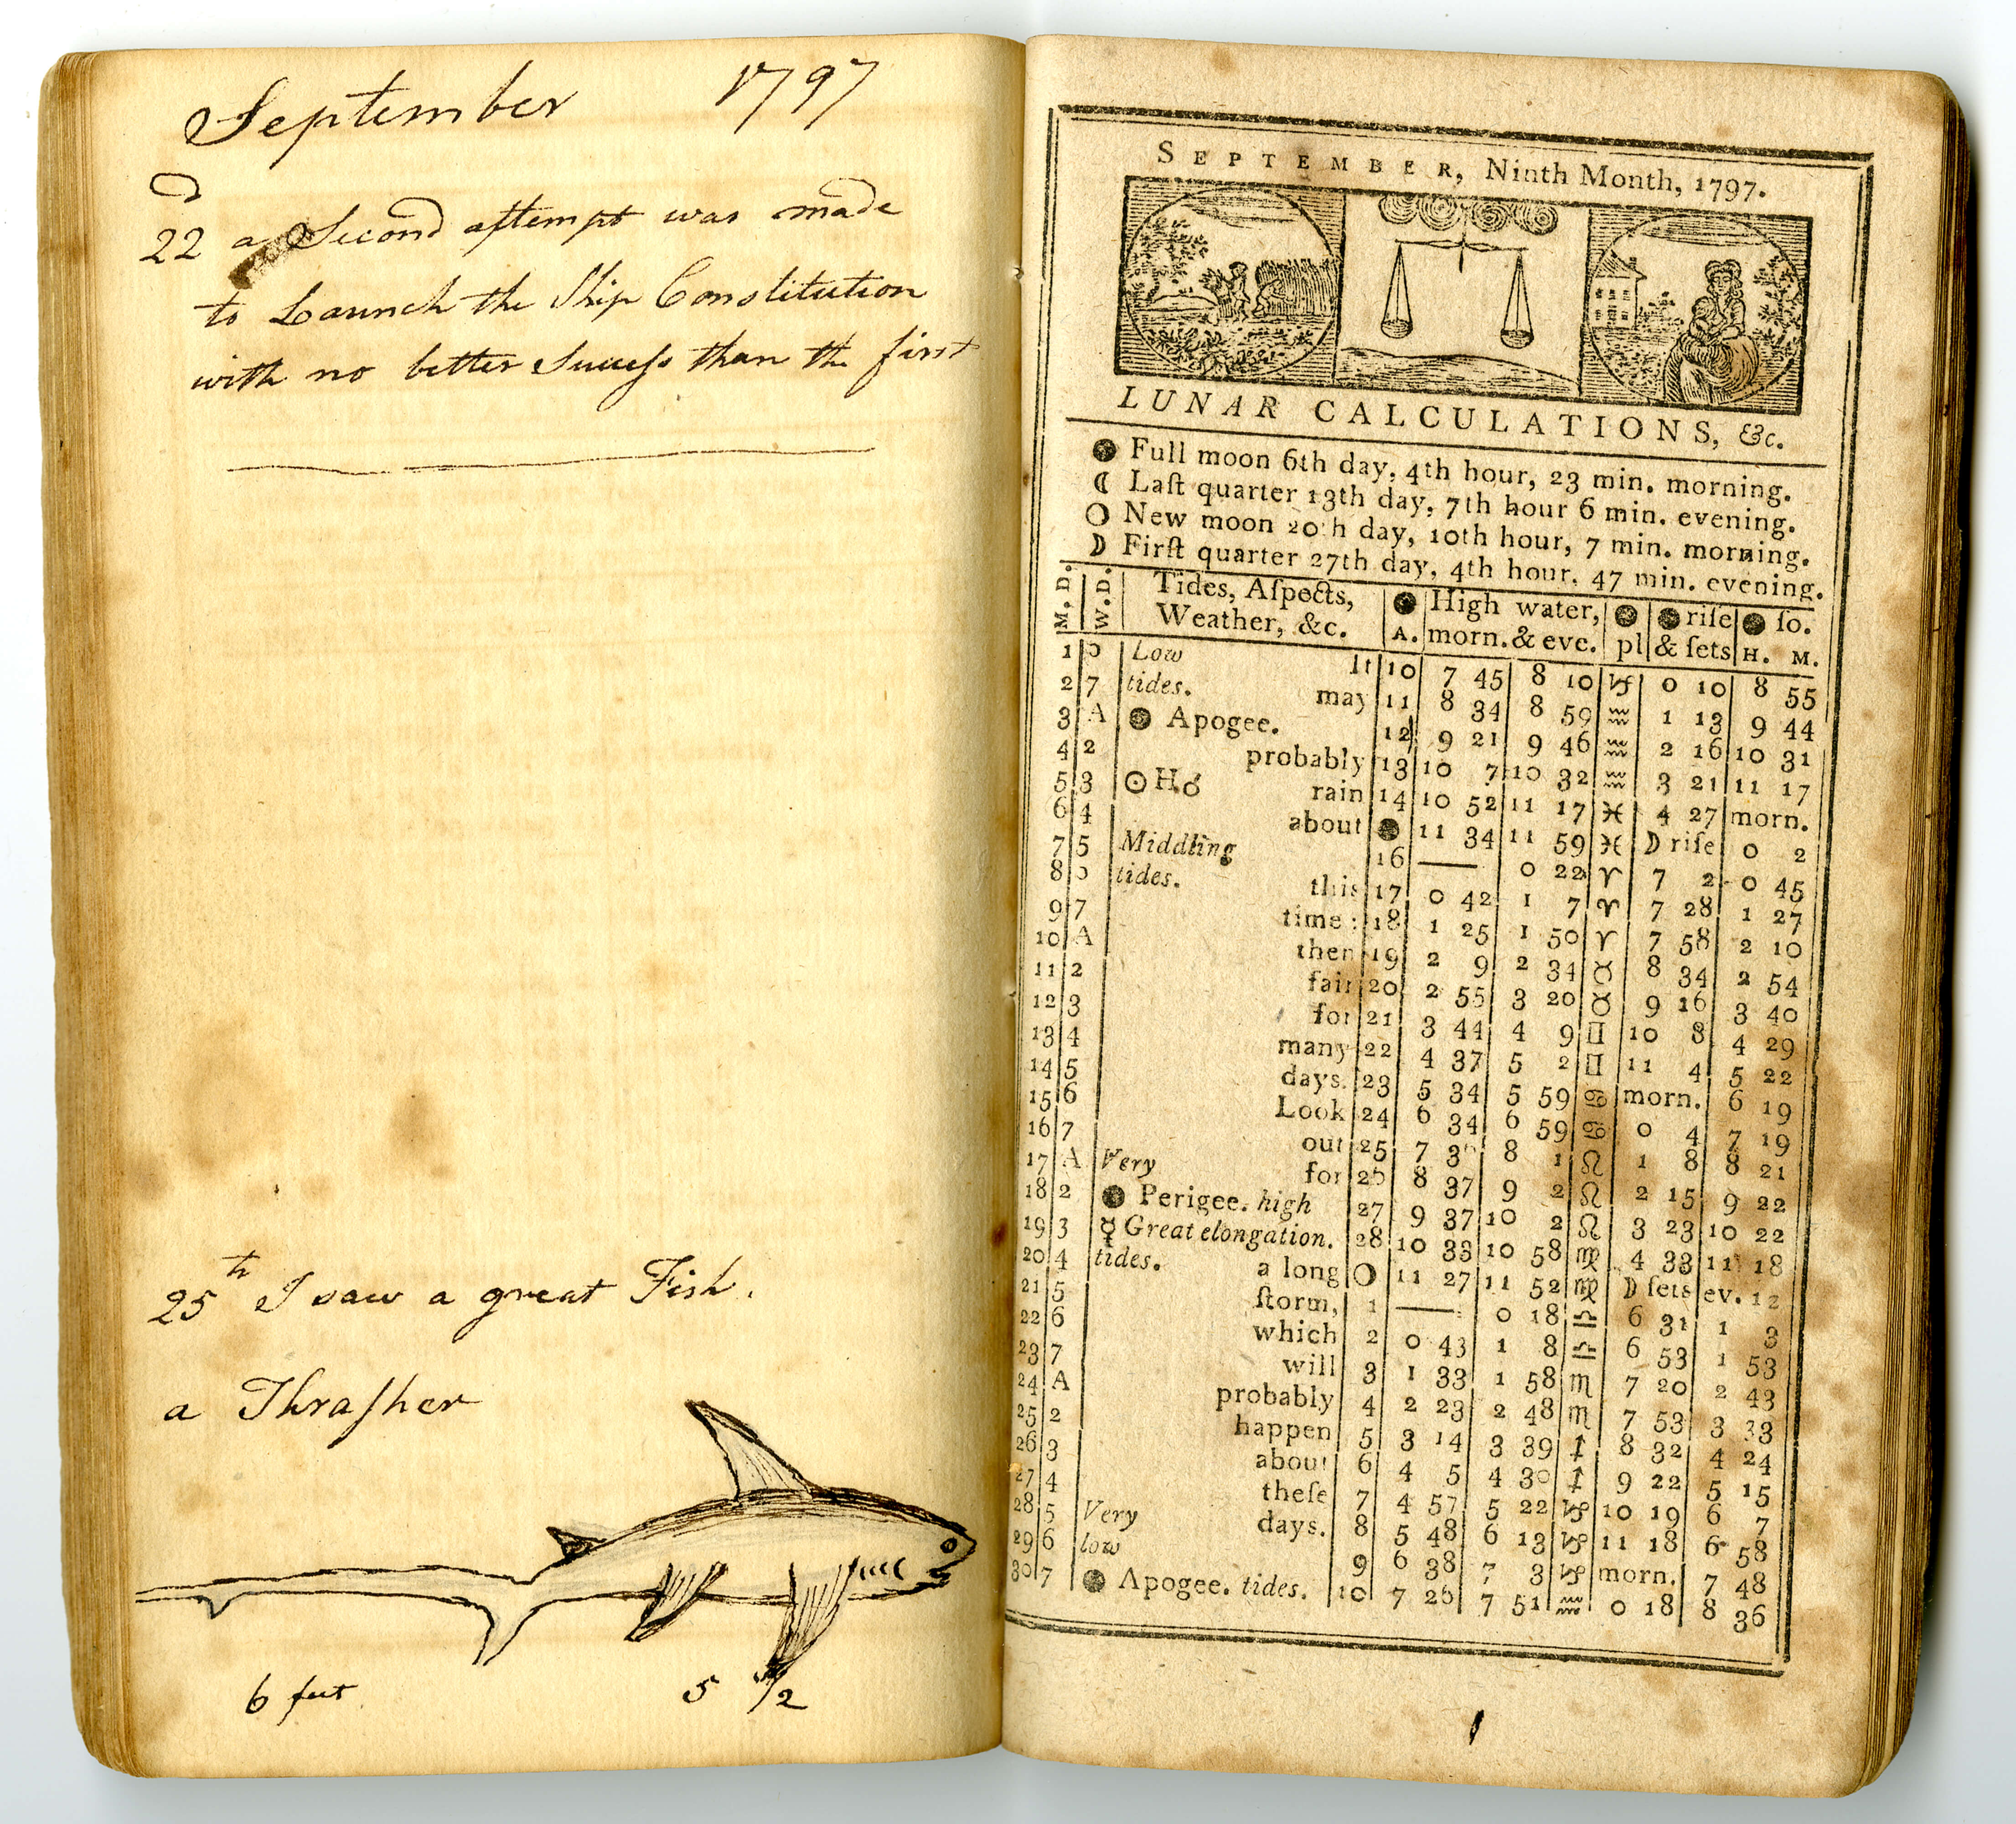 September 1797
D
22 a Second attempt was made
to Launch the Ship Constitution
with no better Succeſs than the first
25th I saw a great Fish.
a Thraſher
6 feet 5 1/2
SEPTEMBER, Ninth Month, 1797.
LUNAR CALCULATIONS, &c.
● Full moon 6th day, 4th hour, 23 min. morning.
☾ Laſt quarter 13th day, 7th hour 6 min. evening.
○ New moon 20th day, 10th hour, 7 min. morning.
☽ Firſt quarter 27th day, 4th hour, 47 min. evening.
M. D. W. D. Tides, Aſpects, ● High water, ● ● riſe ● ſo.
Weather, &c. A. morn. & eve. pl & ſets H. M.
1 Low It 10 7 45 8 10 ♑ 0 10 8 55
2 7 tides. may 11 8 34 8 59 ♒ 1 13 9 44
3 A ● Apogee. 12 9 21 9 46 ♒ 2 16 10 31
4 2 probably 13 10 7 10 32 ♒ 3 21 11 17
5 3 ☉ H. ♂ rain 14 10 52 11 17 ♓ 4 27 morn.
6 4 about ● 11 34 11 59 ♓ ☽ riſe 0 2
7 5 Middling 16 — 0 22 ♈ 7 2 0 45
8 tides. this 17 0 42 1 7 ♈ 7 28 1 27
9 7 time : 18 1 25 1 50 ♈ 7 58 2 10
10 A then 19 2 9 2 34 ♉ 8 34 2 54
11 2 fair 20 2 55 3 20 ♉ 9 16 3 40
12 3 for 21 3 44 4 9 ♊ 10 8 4 29
13 4 many 22 4 37 5 2 ♊ 11 4 5 22
14 5 days. 23 5 34 5 59 ♋ morn. 6 19
15 6 Look 24 6 34 6 59 ♋ 0 4 7 19
16 7 out 25 7 36 8 1 ♌ 1 8 8 21
17 A Very for 26 8 37 9 2 ♌ 2 15 9 22
18 2 ● Perigee. high 27 9 37 10 2 ♌ 3 23 10 22
19 3 ☿ Great elongation. 28 10 33 10 58 ♍ 4 33 11 18
20 4 tides. a long ○ 11 27 11 52 ♍ ☽ ſets ev. 12
21 5 ſtorm, 1 — 0 18 ♎ 6 31 1 3
22 6 which 2 0 43 1 8 ♎ 6 53 1 53
23 7 will 3 1 33 1 58 ♏ 7 20 2 43
24 A probably 4 2 23 2 48 ♏ 7 53 3 33
25 2 happen 5 3 14 3 39 ♐ 8 32 4 24
26 3 about 6 4 5 4 30 ♐ 9 22 5 15
27 4 theſe 7 4 57 5 22 ♑ 10 19 6 7
28 5 Very days. 8 5 48 6 13 ♑ 11 18 6 58
29 6 low 9 6 38 7 3 ♑ morn. 7 48
30 7 ● Apogee. tides. 10 7 26 7 51 ♒ 0 18 8 36